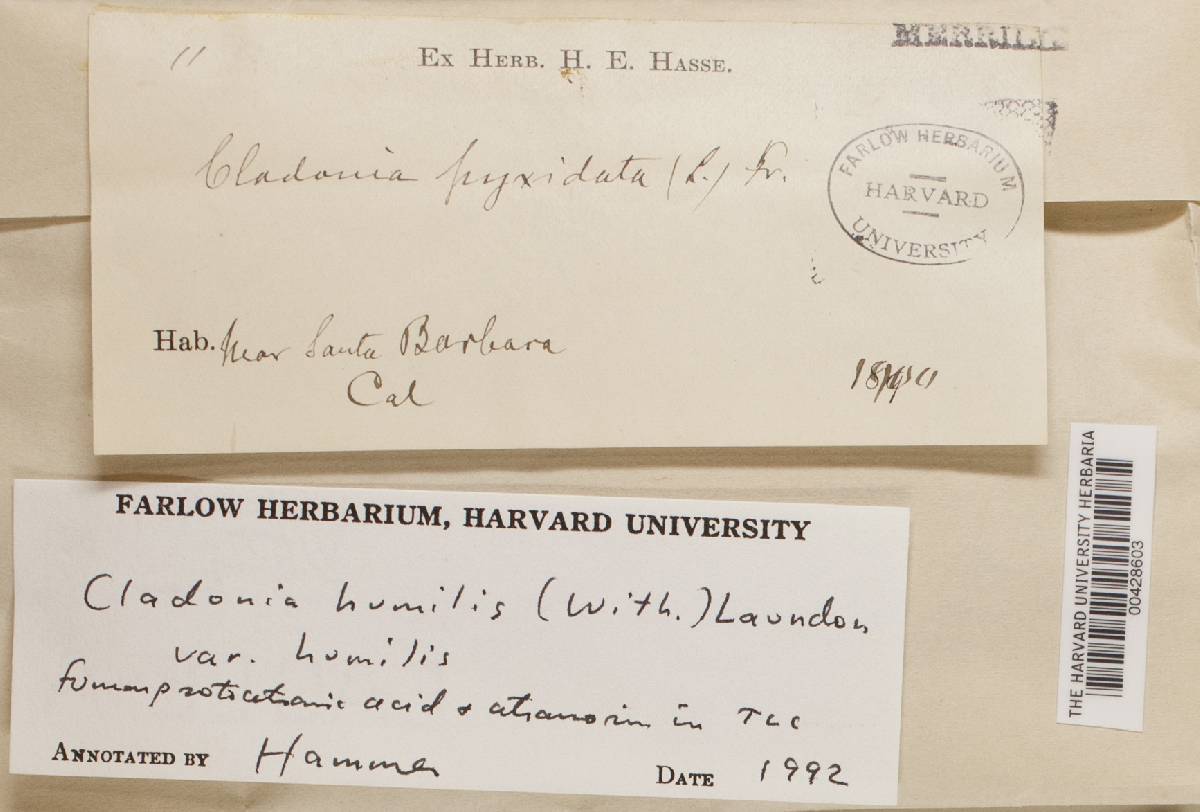 11
Ex Herb. H. E. Hasse.
MERRILL
Cladonia pyxidata (L.) Fr.
FARLOW HERBARIUM
HARVARD
UNIVERSITY
Hab. Near Santa Barbara
Cal
FARLOW HERBARIUM, HARVARD UNIVERSITY
Cladonia humilis (With.) Laundon
var. humilis
fumarprotocetraric acid & atranorin in TLC
Annotated by Hammer
Date 1992
THE HARVARD UNIVERSITY HERBARIA
00428603